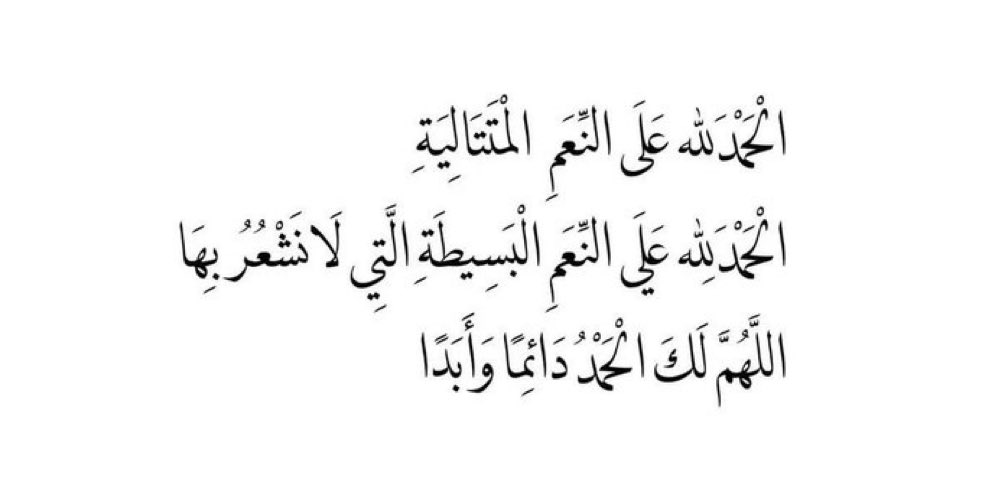 الْحَمْدَلله عَلَى النِّعَمِ الْمُتَتَالِيَةِ
الْحَمْدَلِله عَلَي النِّعَمِ الْبَسِيطَةِ الَّتِي لَا نَشْعُرُ بِهَا
اللَّهُمَّ لَكَ الْحَمْدُ دَائِمًا وَأَبَدًا